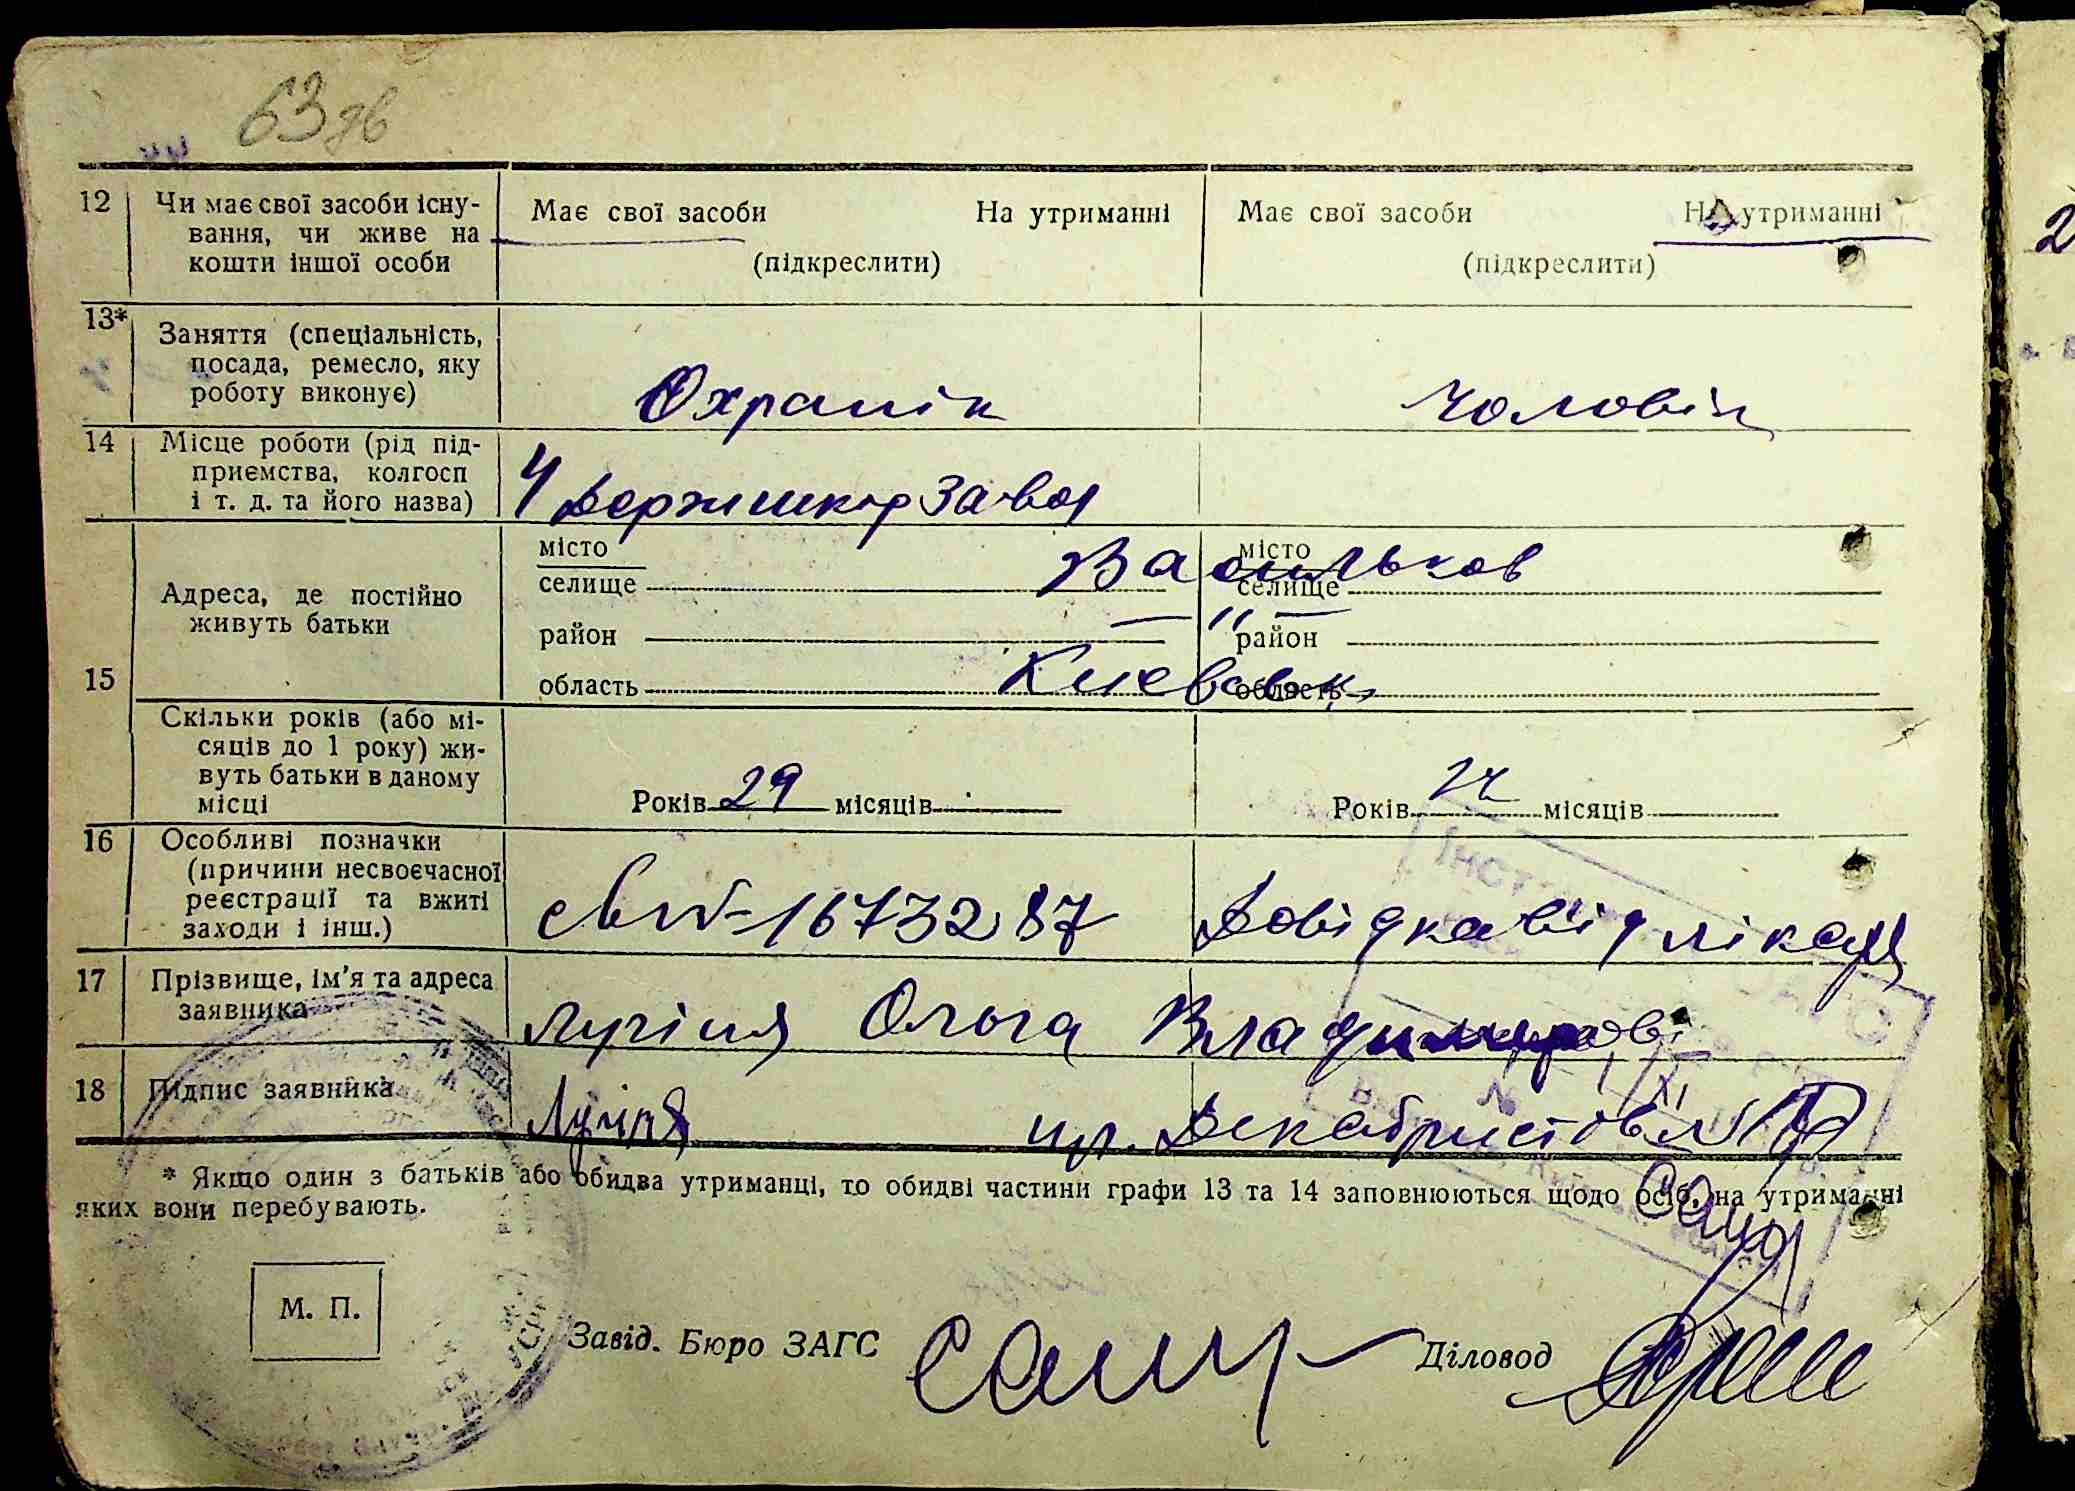 63 зв
12 Чи має свої засоби існу-
вання, чи живе на
кошти іншої особи
Має свої засоби На утриманні
(підкреслити)
Має свої засоби На утриманні
(підкреслити)
13* Заняття (спеціальність,
посада, ремесло, яку
роботу виконує)
Охранік
Чоловік
14 Місце роботи (рід під-
приємства, колгосп
і т. д. та його назва)
4 Держшкірзавод
15 Адреса, де постійно
живуть батьки
місто
селище
Васильков
район
— " —
область
Киевськ
місто
селище
район
область
Скільки років (або мі-
сяців до 1 року) жи-
вуть батьки в даному
місці
Років 29 місяців
Років 24 місяців
16 Особливі позначки
(причини несвоєчасної
реєстрації та вжиті
заходи і інш.)
св №-1673287 Довідка від лікаря
17 Прізвище, ім'я та адреса
заявника
Ольга
18 Підпис заявника
Декабристов
* Якщо один з батьків або обидва утриманці, то обидві частини графи 13 та 14 заповнюються щодо осіб, на утриманні
яких вони перебувають.
М. П.
Завід. Бюро ЗАГС
Діловод